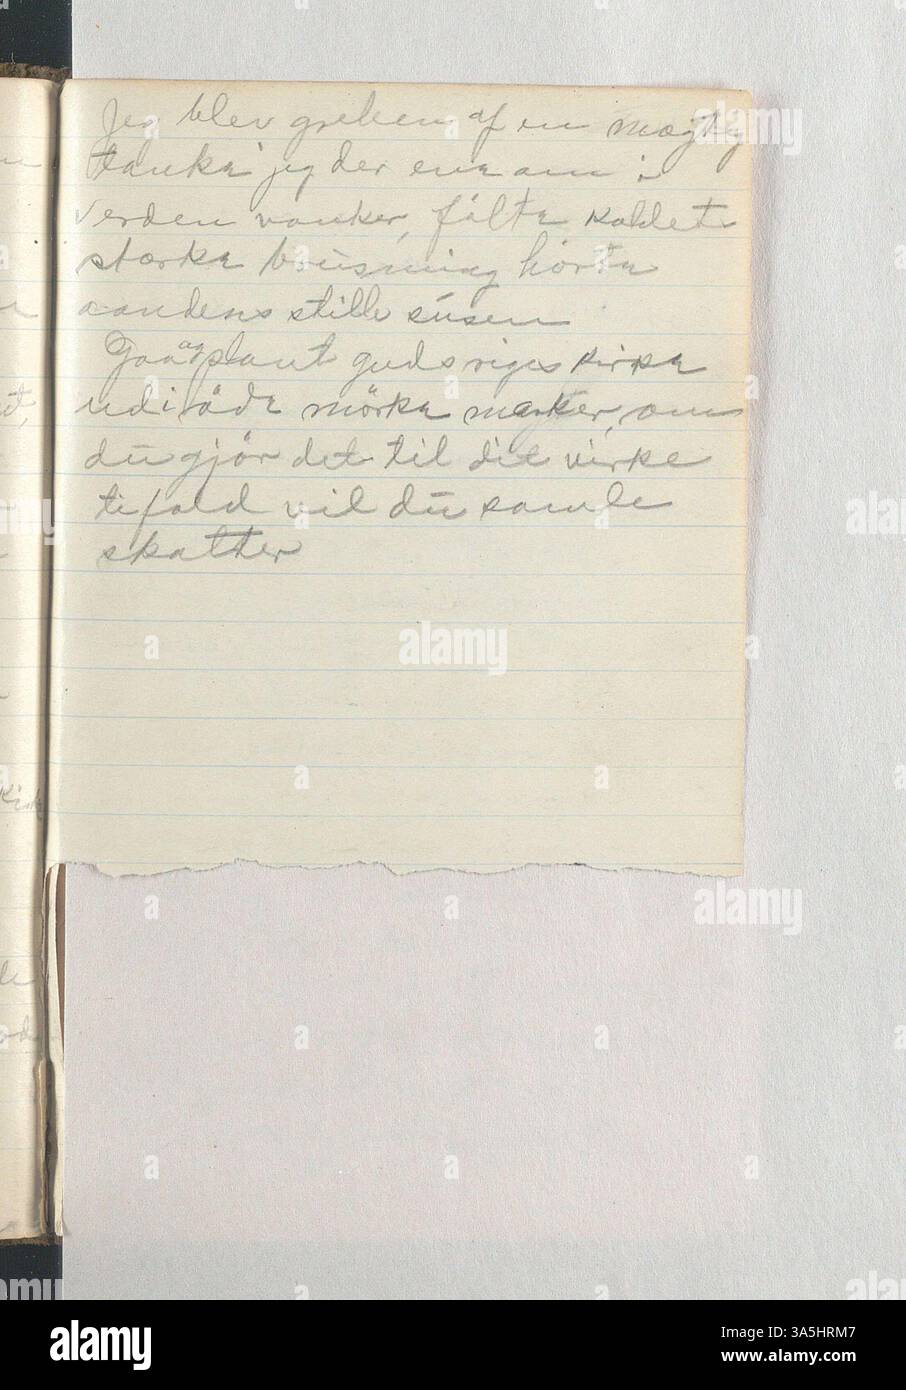 Jeg blev greben af en mægtig
tanke jeg der ene om i
verden vanker, følte kaldet
stærke brusning hørte
aandens stille susen
Gaa og plant guds riges kirke
ud i øde mörke marker, om
du gjör det til dit virke
tifold vil du samle
skatter
alamy
a
Image ID: 3A5HRM7
www.alamy.com